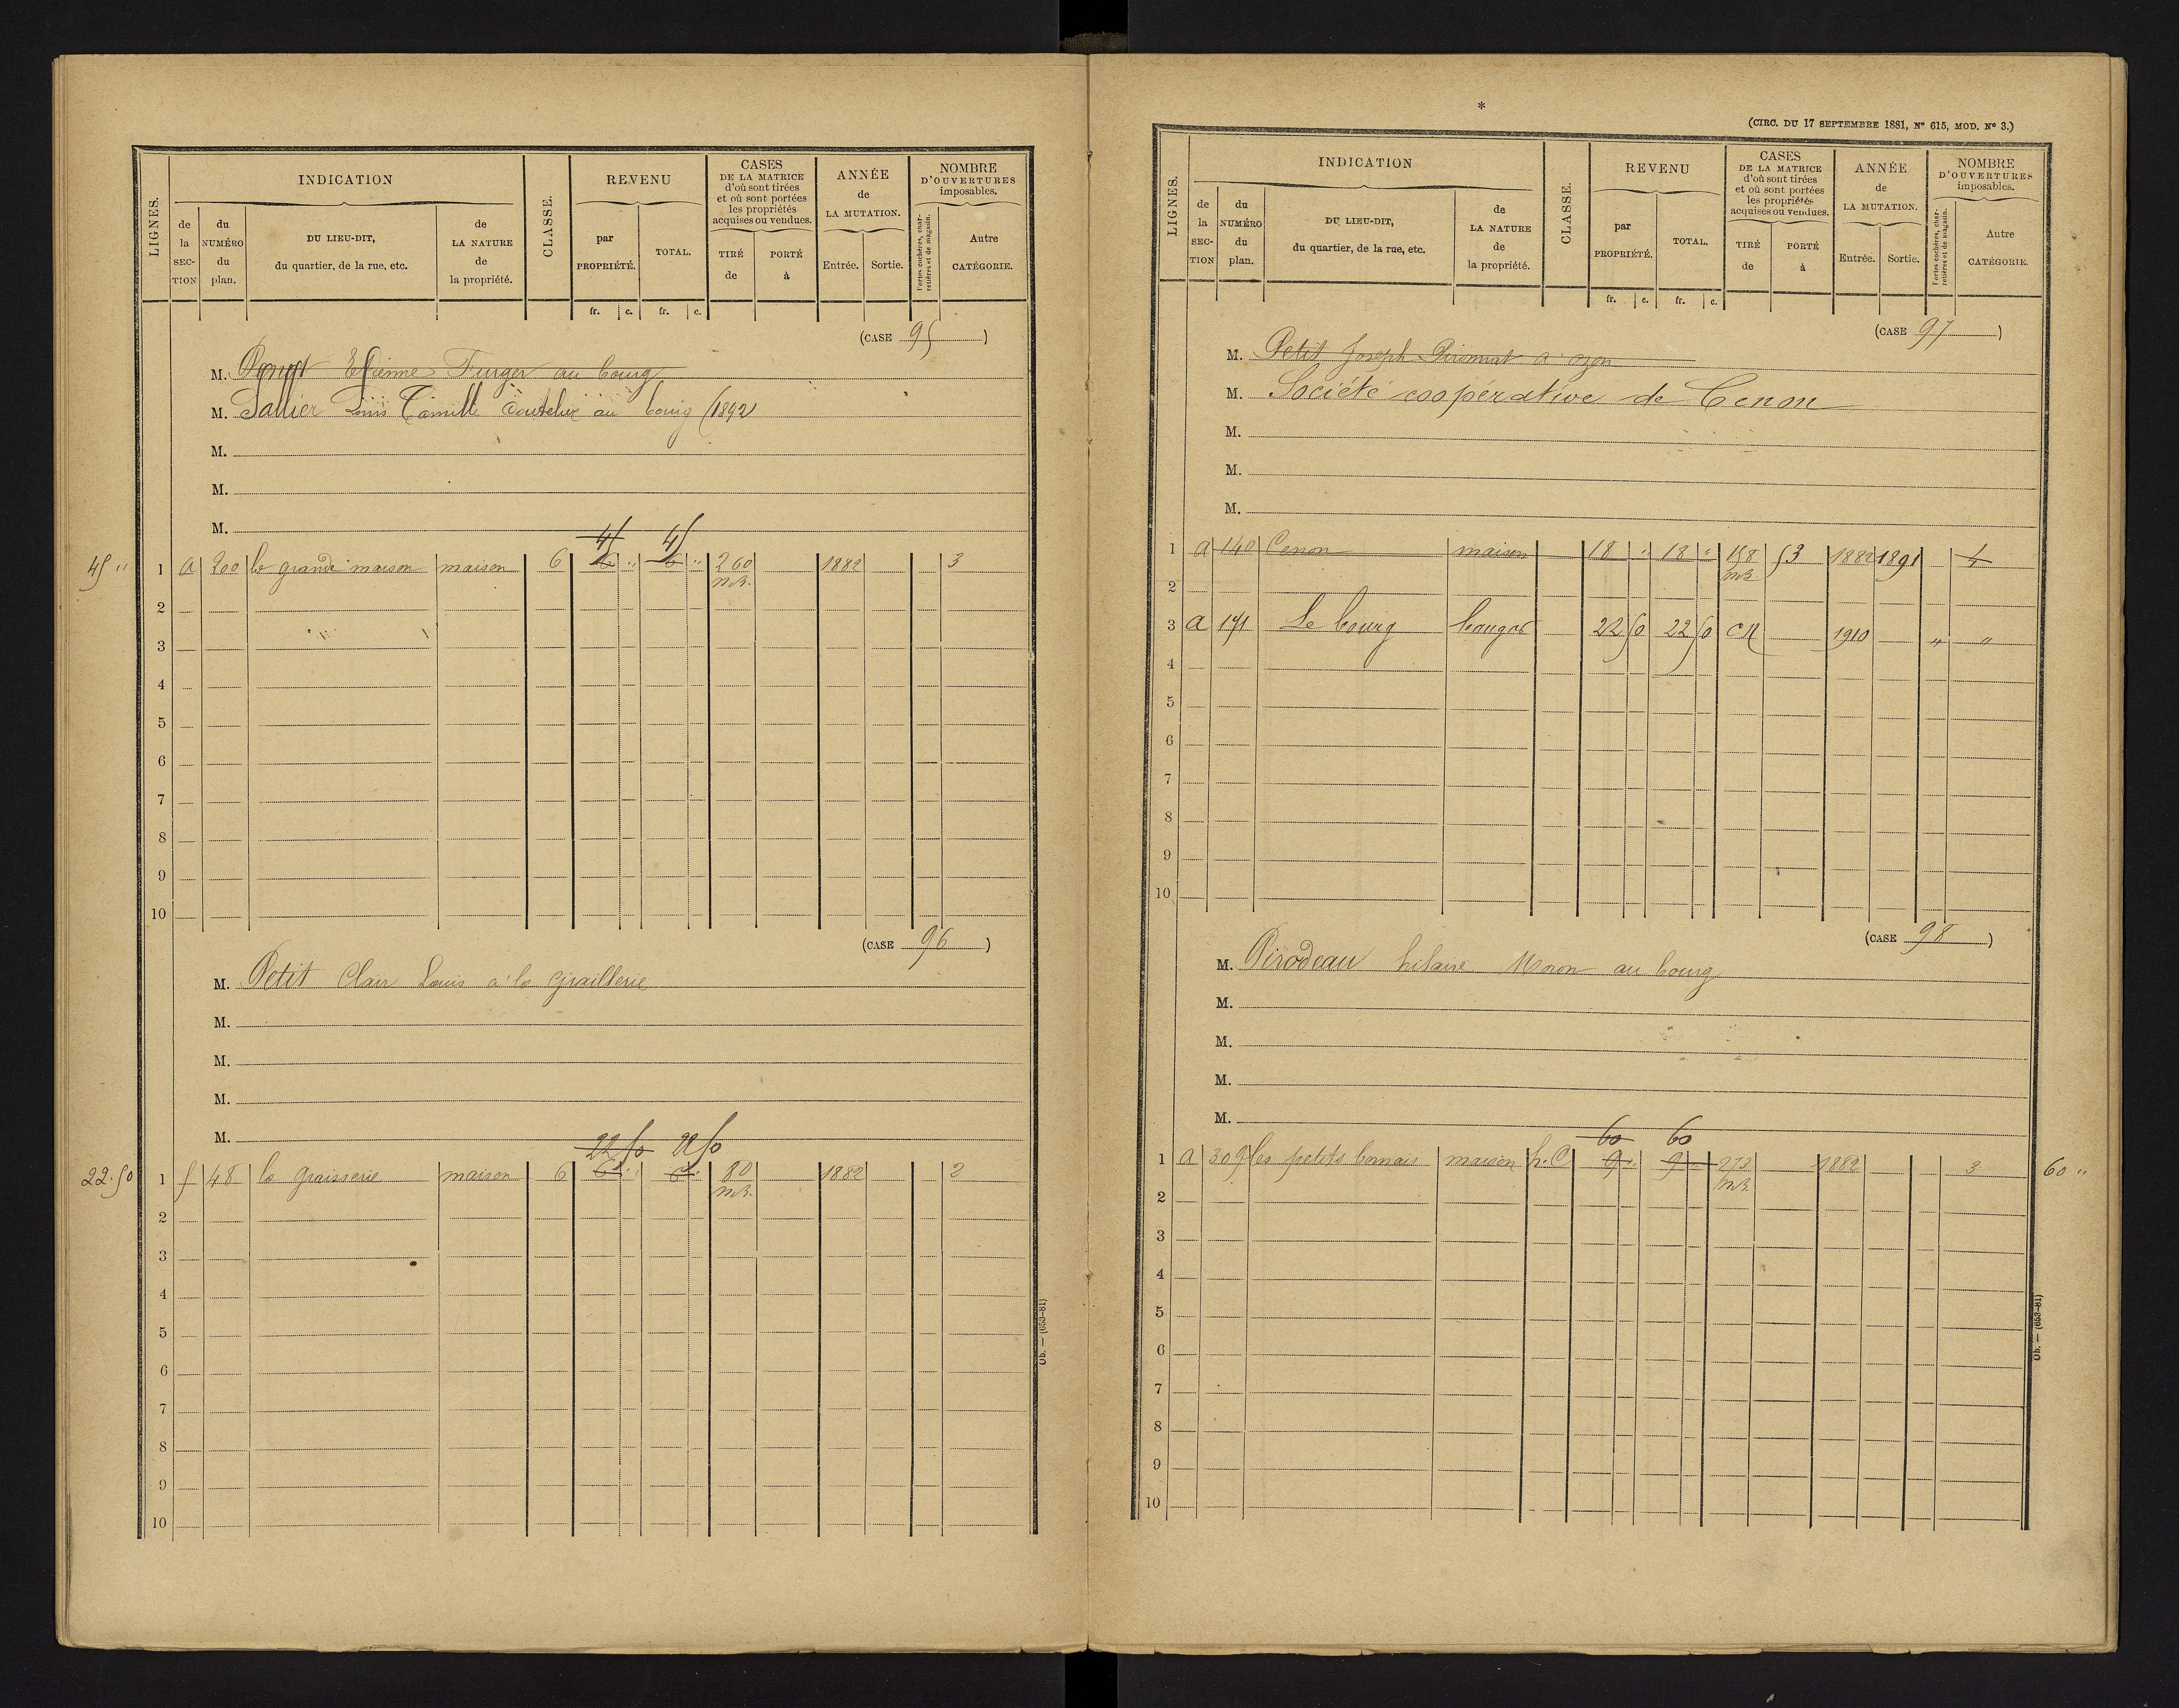 LIGNES.
INDICATION
de la SECTION
du NUMÉRO du plan.
DU LIEU-DIT, du quartier, de la rue, etc.
de LA NATURE de la propriété.
CLASSE.
REVENU
par PROPRIÉTÉ.
TOTAL.
fr. c. fr. c.
CASES DE LA MATRICE d'où sont tirées et où sont portées les propriétés acquises ou vendues.
TIRÉ de
PORTÉ à
ANNÉE de LA MUTATION.
Entrée. Sortie.
NOMBRE D'OUVERTURES imposables.
Portes cochères, charretières et de magasin.
Autre CATÉGORIE.
(CASE 95)
M. Etienne au bourg
M. Sallier Louis Camille au bourg (1892
M.
M.
M.
45 45
45 " 1 a 200 la grande maison maison 6 6 " 6 " 260 1882 3
m.R.
2
3
4
5
6
7
8
9
10
(CASE 96)
M. Petit Clair Louis à la Graillerie
M.
M.
M.
M.
22 50 22 50
22.50 1 f 48 la graisserie maison 6 6 " 6 " 80 1882 2
m.R.
2
3
4
5
6
7
8
9
10
Ob. — (653-81)
*
(CIRC. DU 17 SEPTEMBRE 1881, N° 615, MOD. N° 3.)
LIGNES.
INDICATION
de la SECTION
du NUMÉRO du plan.
DU LIEU-DIT, du quartier, de la rue, etc.
de LA NATURE de la propriété.
CLASSE.
REVENU
par PROPRIÉTÉ.
TOTAL.
fr. c. fr. c.
CASES DE LA MATRICE d'où sont tirées et où sont portées les propriétés acquises ou vendues.
TIRÉ de
PORTÉ à
ANNÉE de LA MUTATION.
Entrée. Sortie.
NOMBRE D'OUVERTURES imposables.
Portes cochères, charretières et de magasin.
Autre CATÉGORIE.
(CASE 97)
M. Petit Joseph à ozon
M. Société coopérative de Cenon
M.
M.
M.
1 a 140 Cenon maison 18 " 18 " 158 53 1882 1891 4
m.R.
2
3 a 171 Le bourg 22 50 22 50 CN 1910 " "
4
5
6
7
8
9
10
(CASE 98)
M. Pirodeau hilaire au bourg
M.
M.
M.
M.
60 60
1 a 309 les petits maison h.C 9 " 9 " 273 1882 3 60 "
m.R.
2
3
4
5
6
7
8
9
10
Ob. — (653-81)